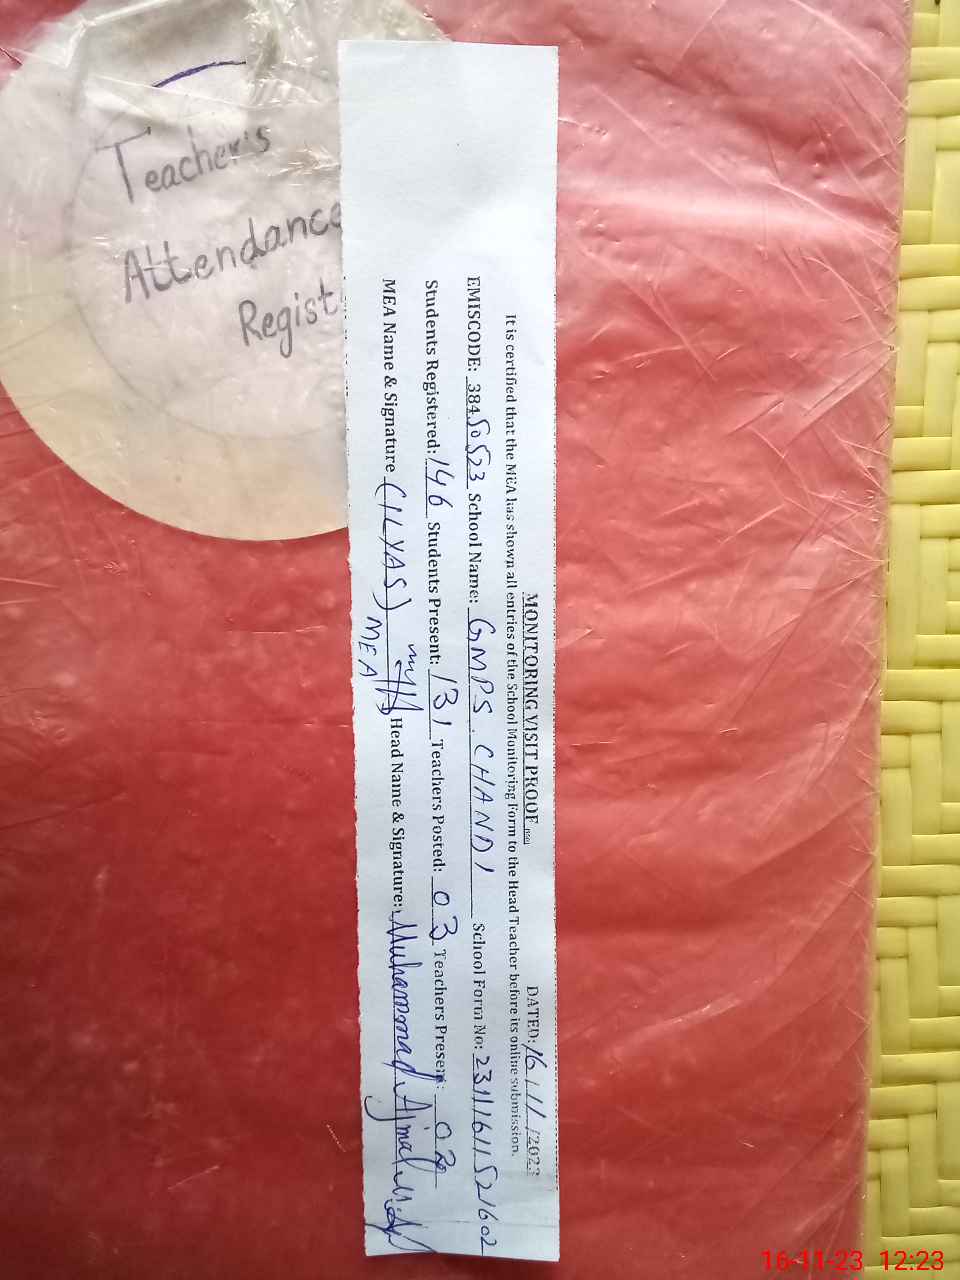 Teacher's
Attendance
Regist
MONITORING VISIT PROOF
DATED: 16/11/2023
It is certified that the MEA has shown all entries of the School Monitoring Form to the Head Teacher before its online submission.
EMISCODE: 38450523 School Name: GMPS CHANDI School Form No: 23111611521602
Students Registered: 146 Students Present: 131 Teachers Posted: 03 Teachers Present: 02
MEA Name & Signature (ILYAS) Head Name & Signature: Muhammad Ajmal
MEA
16-11-23 12:23